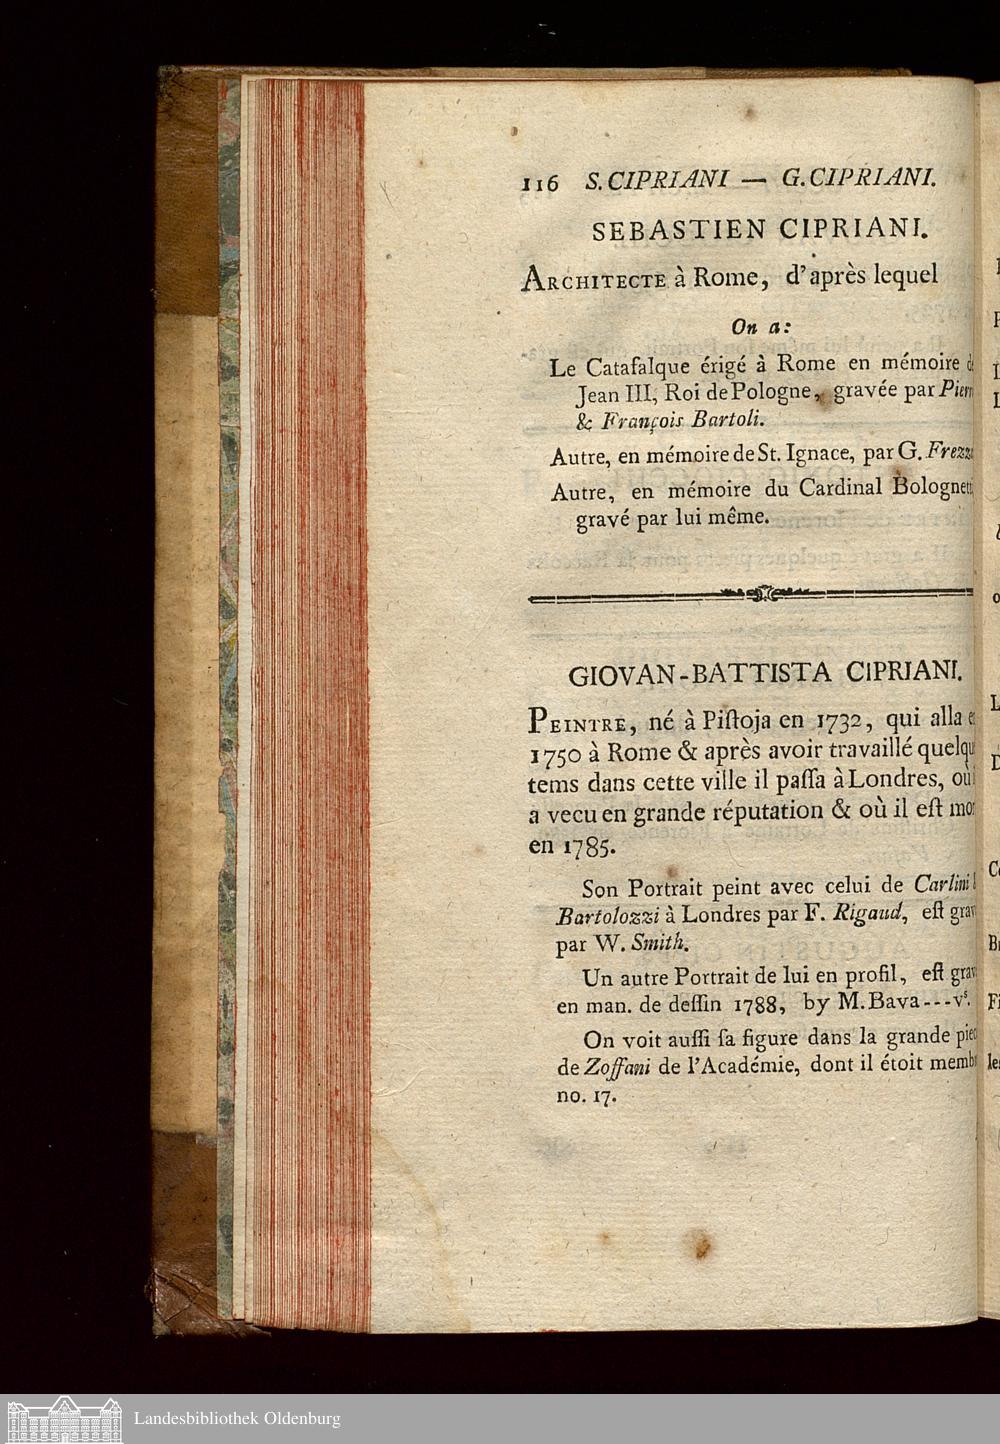 116 S. CIPRIANI — G. CIPRIANI.
SEBASTIEN CIPRIANI.
ARCHITECTE à Rome, d'après lequel
On a:
Le Catafalque érigé à Rome en mémoire d
Jean III, Roi de Pologne, gravée par Pierr
& François Bartoli.
Autre, en mémoire de St. Ignace, par G. Frezz
Autre, en mémoire du Cardinal Bolognetti
gravé par lui même.
GIOVAN-BATTISTA CIPRIANI.
PEINTRE, né à Piſtoja en 1732, qui alla e
1750 à Rome & après avoir travaillé quelqu
tems dans cette ville il paſſa à Londres, où i
a vecu en grande réputation & où il eſt mor
en 1785.
Son Portrait peint avec celui de Carlini
Bartolozzi à Londres par F. Rigaud, eſt grav
par W. Smith.
Un autre Portrait de lui en profil, eſt grav
en man. de deſſin 1788, by M. Bava---vs.
On voit auſſi ſa figure dans la grande piec
de Zoffani de l'Académie, dont il étoit memb
no. 17.
Landesbibliothek Oldenburg